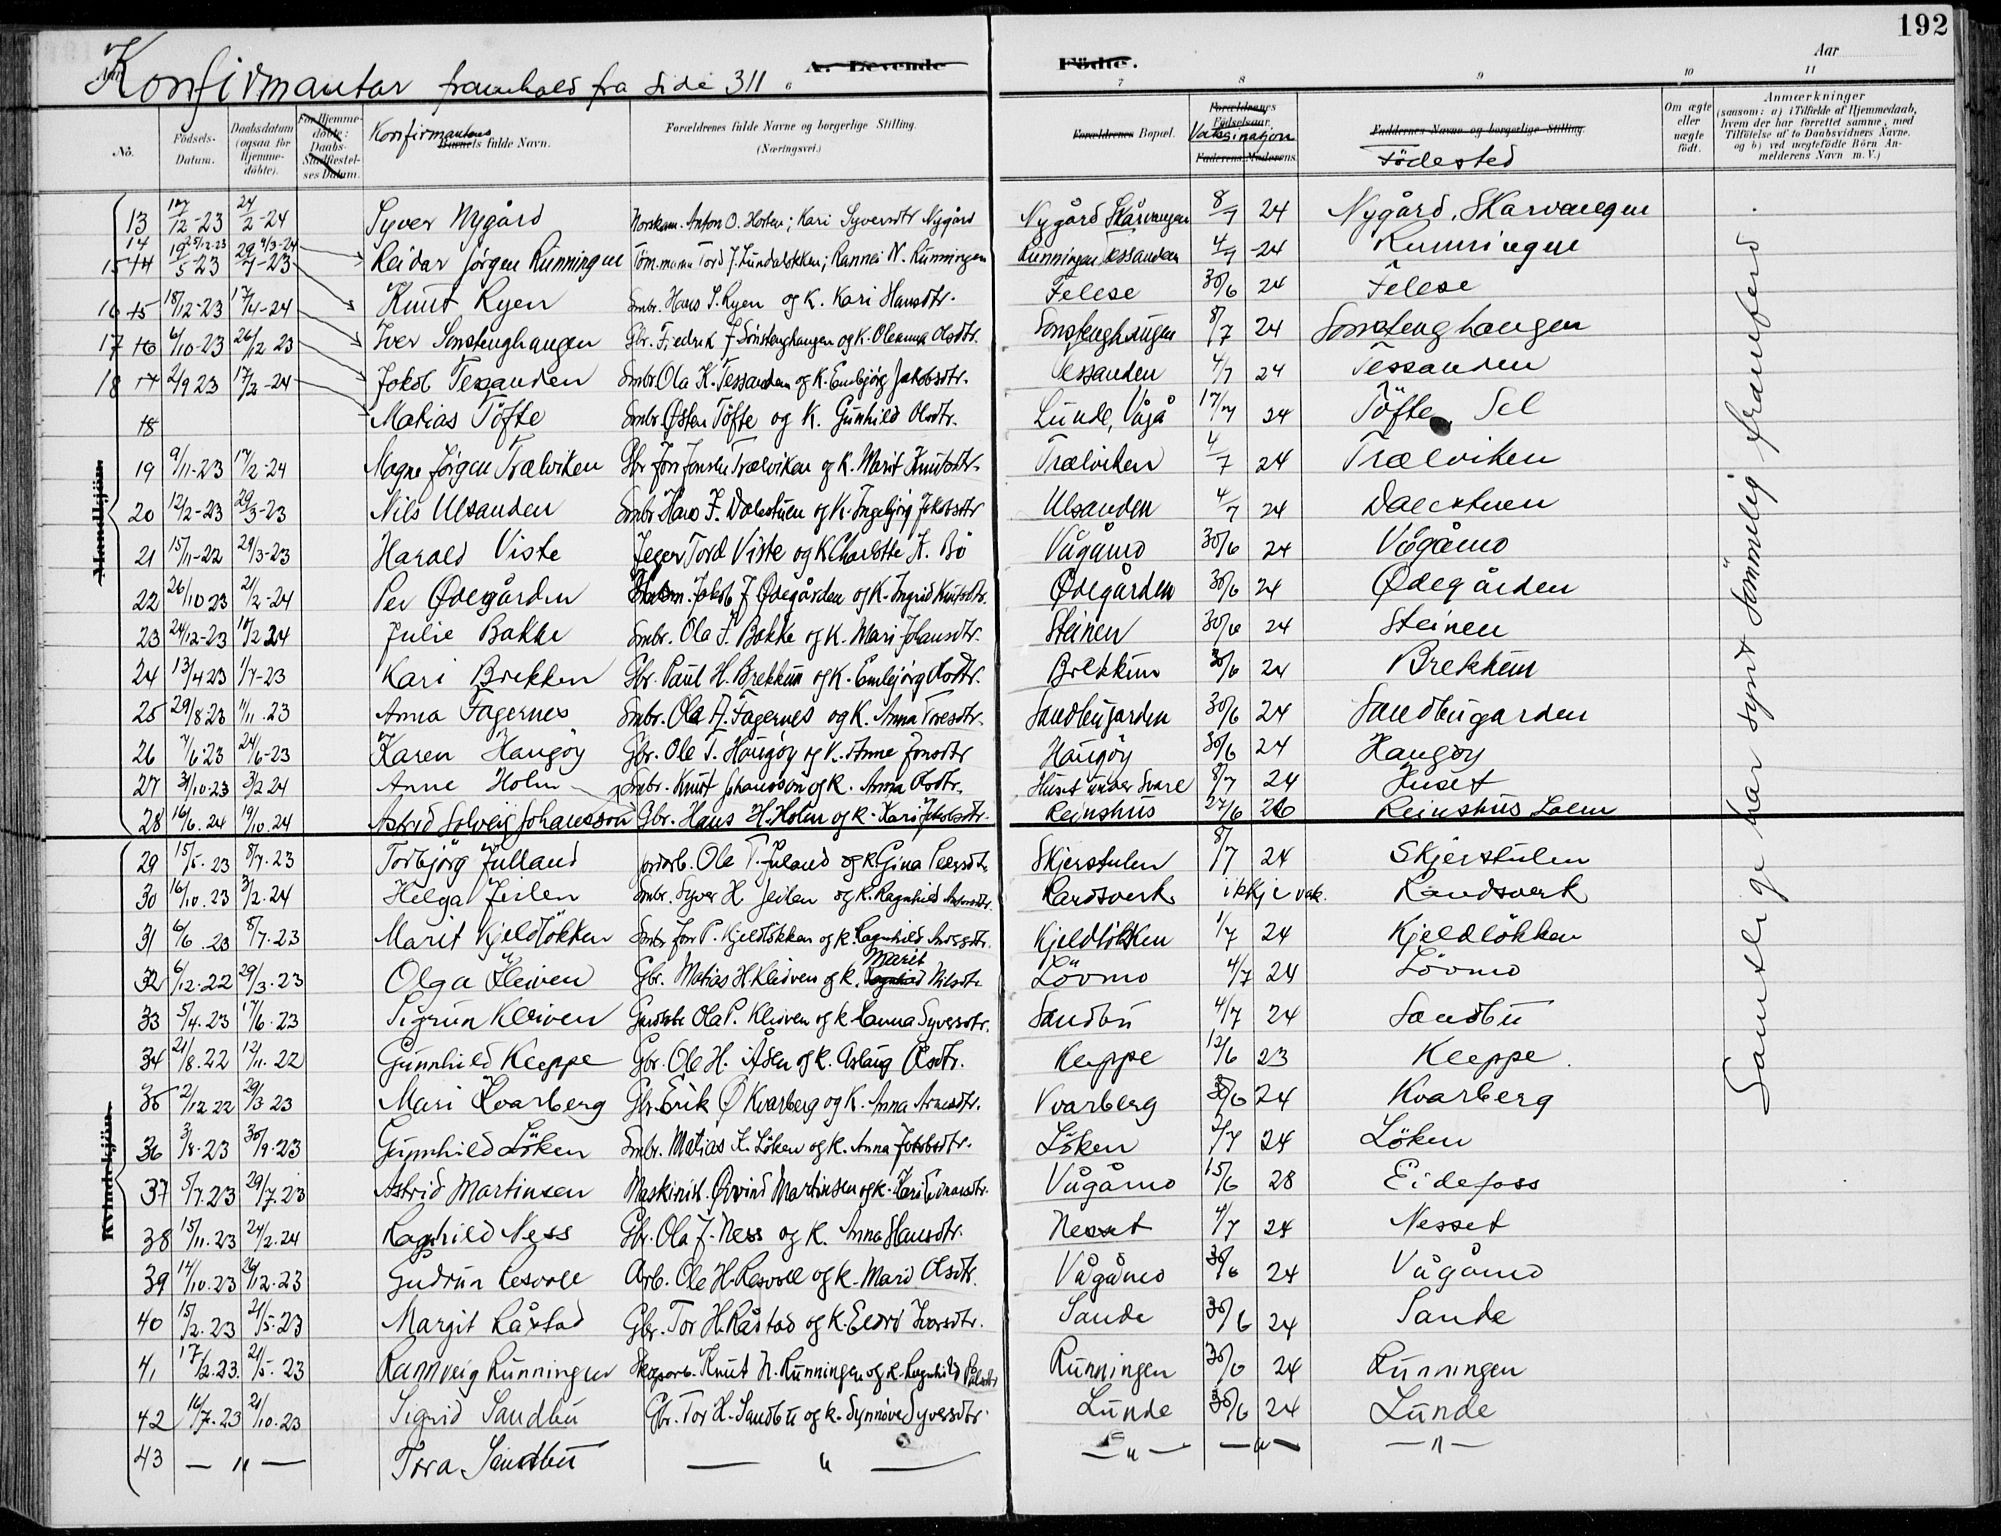 192
Konfirmantar framhald fra side 311
A. Levende Födte.
Aar
6 7 8 9 10 11
No. Födsels-Datum. Daabsdatum (ogsaa for Hjemme-döbte). For Hjemme-döbte: Daabs-Stadfæstel-ses Datum. Konfirmantens Barnets fulde Navn. Forældrenes fulde Navne og borgerlige Stilling. (Næringsvei.) Forældrenes Bopæl. Forældrenes Födselsaar. Vaksinasjon Faderens. Moderens. Faddernes Navne og borgerlige Stilling. Födested Om ægte eller uægte födt. Anmærkninger (saasom: a) i Tilfælde af Hjemmedaab, hvem der har forrettet samme, med Tilföielse af to Daabsvidners Navne, og b) ved uægtefödte Börn An-melderens Navn m. V.)
Mandkjön.
13 12/12-23 24/2-24 Syver Nygård Anton O. Horten; Kari Syversdtr Nygård Nygård Skårvangen 8/7 24 Nygård, Skarvangen
14 25/12-23 4/3-24
15 14 19/5-23 29/7-23 Reidar Jørgen Runningen Tömmerm Tord J. Lundaløkken; Rannei N. Runningen Runningen Tessanden 4/7 -24 Runningen
16 15 18/12-23 17/4-24 Knut Ryen Smbr. Hans S. Ryen og K. Kari Hansdtr. Felese 30/6 24 Felese
17 16 6/10-23 26/12 23 Iver Sonstenghaugen Gbr. Fredrik J Sönstenghaugen og K. Oleanna Olsdtr. Sonstenghaugen 8/7 24 Sonstenghaugen
18 17 2/9 23 17/2-24 Jakob Tessanden Smbr. Ola K. Tessanden og K. Embjörg Jakobsdtr. Tessanden 4/7 24 Tessanden
18 Matias Töfte Smbr. Østen Töfte og K. Gunhild Olsdtr. Lunde, Vågå 17/7 24 Töfte, Sel
19 9/11-23 17/2-24 Magne Jörgen Trælviken Gbr Jon Jonsen Trælviken og K. Marit Knutsdtr. Trælviken 4/7 24 Trælviken
20 12/2-23 29/3-23 Nils Ulsanden Smbr Hans J. Dalestuen og K. Ingebjörg Jakobsdtr Ulsanden 4/7 24 Dalestuen
21 15/11-22 29/3-23 Harald Viste Jeger Tord Viste og K Charlotte K. Bö Vågåmo 30/6 24 Vågåmo
22 26/10 23 21/2-24 Per Ødegården Jakob J Ødegården og K. Ingrid Knutsdtr. Ødegården 30/6 24 Ødegården
23 24/12-23 10/2 24 Julie Bakke Smbr. Ola J. Bakke og K. Mari Johansdtr. Steinen 30/6 24 Steinen
24 13/4 23 1/7-23 Kari Brekken Gbr. Paul H. Brekkum og K. Embjörg Olsdtr. Brekkum 30/6 24 Brekkum
25 29/8 23 11/11.23 Anna Fagernes Smbr. Ola A. Fagernes og K. Anna Toresdtr. Sandbugarden 30/6 24 Sandbugarden
26 7/6 23 24/6-23 Karen Haugöy Gbr. Ole T. Haugöy og K. Anne Jonsdtr Haugöy 30/6 24 Haugöy
27 31/10.23 3/2 24 Anne Holm Smbr. Knut Johansson og K. Anna Olsdtr. Huset under Svare 8/7 24 Huset
28 16/6.24 19/10.24 Astrid Solveig Johansson Gbr. Hans H. Holm og K. Kari Jakobsdtr. Reinshus 27/6 26 Reinshus Lalm
Kvindekjön.
29 15/5.23 8/7.23 Torbjörg Julland jordarb. Ole T. Juland og K. Gina Peersdtr. Skjerstulen 8/7 24 Skjerstulen
30 16/10.23 3/2.24 Helga Jeilen Smbr. Syver H Jeilen og K. Ragnhild Randsverk ikkje vak. Randsverk
31 6/6.23 8/7.23 Marit Kjeldlökken Smbr Jon P. Kjeldlökken og K. Ragnhild Kjeldlökken 1/7 24 Kjeldlökken
32 6/12.22 29/3.23 Olga Kleiven Gbr. Matias H. Kleiven og K. Marit Ragnhild Nilsdtr. Lövmo 4/7 24 Lövmo
33 5/4.23 17/6.23 Sigrun Kleiven Ola P. Kleiven og K. Hanna Syversdtr. Sandbu 4/7 24 Sandbu
34 21/8.22 12/11.22 Gunnhild Kleppe Gbr. Ole H. Åsen og K. Aslaug Olsdtr. Kleppe 12/6 23 Kleppe.
35 2/12 22 29/3 23 Mari Kvarberg Gbr. Erik Ø Kvarberg og K. Anna Arnesdtr. Kvarberg 30/6 24 Kvarberg
36 3/8.23 30/9.23 Gunnhild Löken Smbr. Matias K. Löken og K. Anna Jakobsdtr. Löken 2/7 24 Löken
37 5/7.23 29/7.23 Astrid Martinsen Maskinist. Øivind Martinsen og K. Kari Vågåmo 15/6 28 Eidefoss
38 15/11.23 24/2.24 Ragnhild Ness Gbr. Ola J. Ness og K. Anna Hansdtr. Nesset 4/7 24 Nesset
39 14/10.23 26/12.23 Gudrun Resvoll Arb. Ole H. Resvoll og K. Mari Olsdtr. Vågåmo 30/6 24 Vågåmo
40 15/2.23 21/5.23 Margit Råstad Gbr. Tor H. Råstad og K. Eldri Ivarsdtr. Sande 30/6 24 Sande
41 17/2.23. 21/5.23 Rannveig Runningen Skogsarb. Knut N. Runningen og K. Ragnhild Pålsdtr Runningen 30/6 24 Runningen
42 16/7.23 21/10.23 Sigrid Sandbu Gbr. Tor H. Sandbu og K. Synnöve Syversdtr. Lunde 30/6 24 Lunde
43 — " — Tora Sandbu — " — — " — — " — — " —
Samtlige har synt sömmelig framferd.